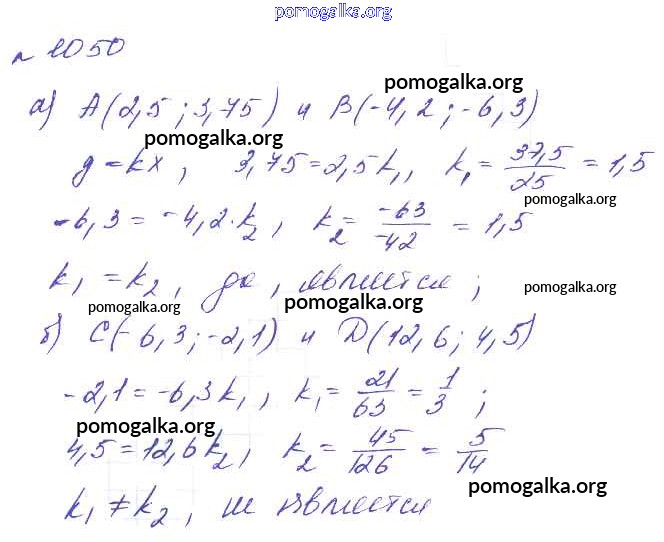 pomogalka.org
№ 1050
pomogalka.org
а) A(2,5; 3,75) и B(-4,2; -6,3)
pomogalka.org
y = kx, 3,75 = 2,5k₁, k₁ = 37,5/25 = 1,5
pomogalka.org
-6,3 = -4,2·k₂, k₂ = -63/-42 = 1,5
k₁ = k₂, да, является;
pomogalka.org pomogalka.org pomogalka.org
б) C(-6,3; -2,1) и D(12,6; 4,5)
-2,1 = -6,3k₁, k₁ = 21/63 = 1/3;
pomogalka.org
4,5 = 12,6k₂, k₂ = 45/126 = 5/14
pomogalka.org
k₁ ≠ k₂, не является